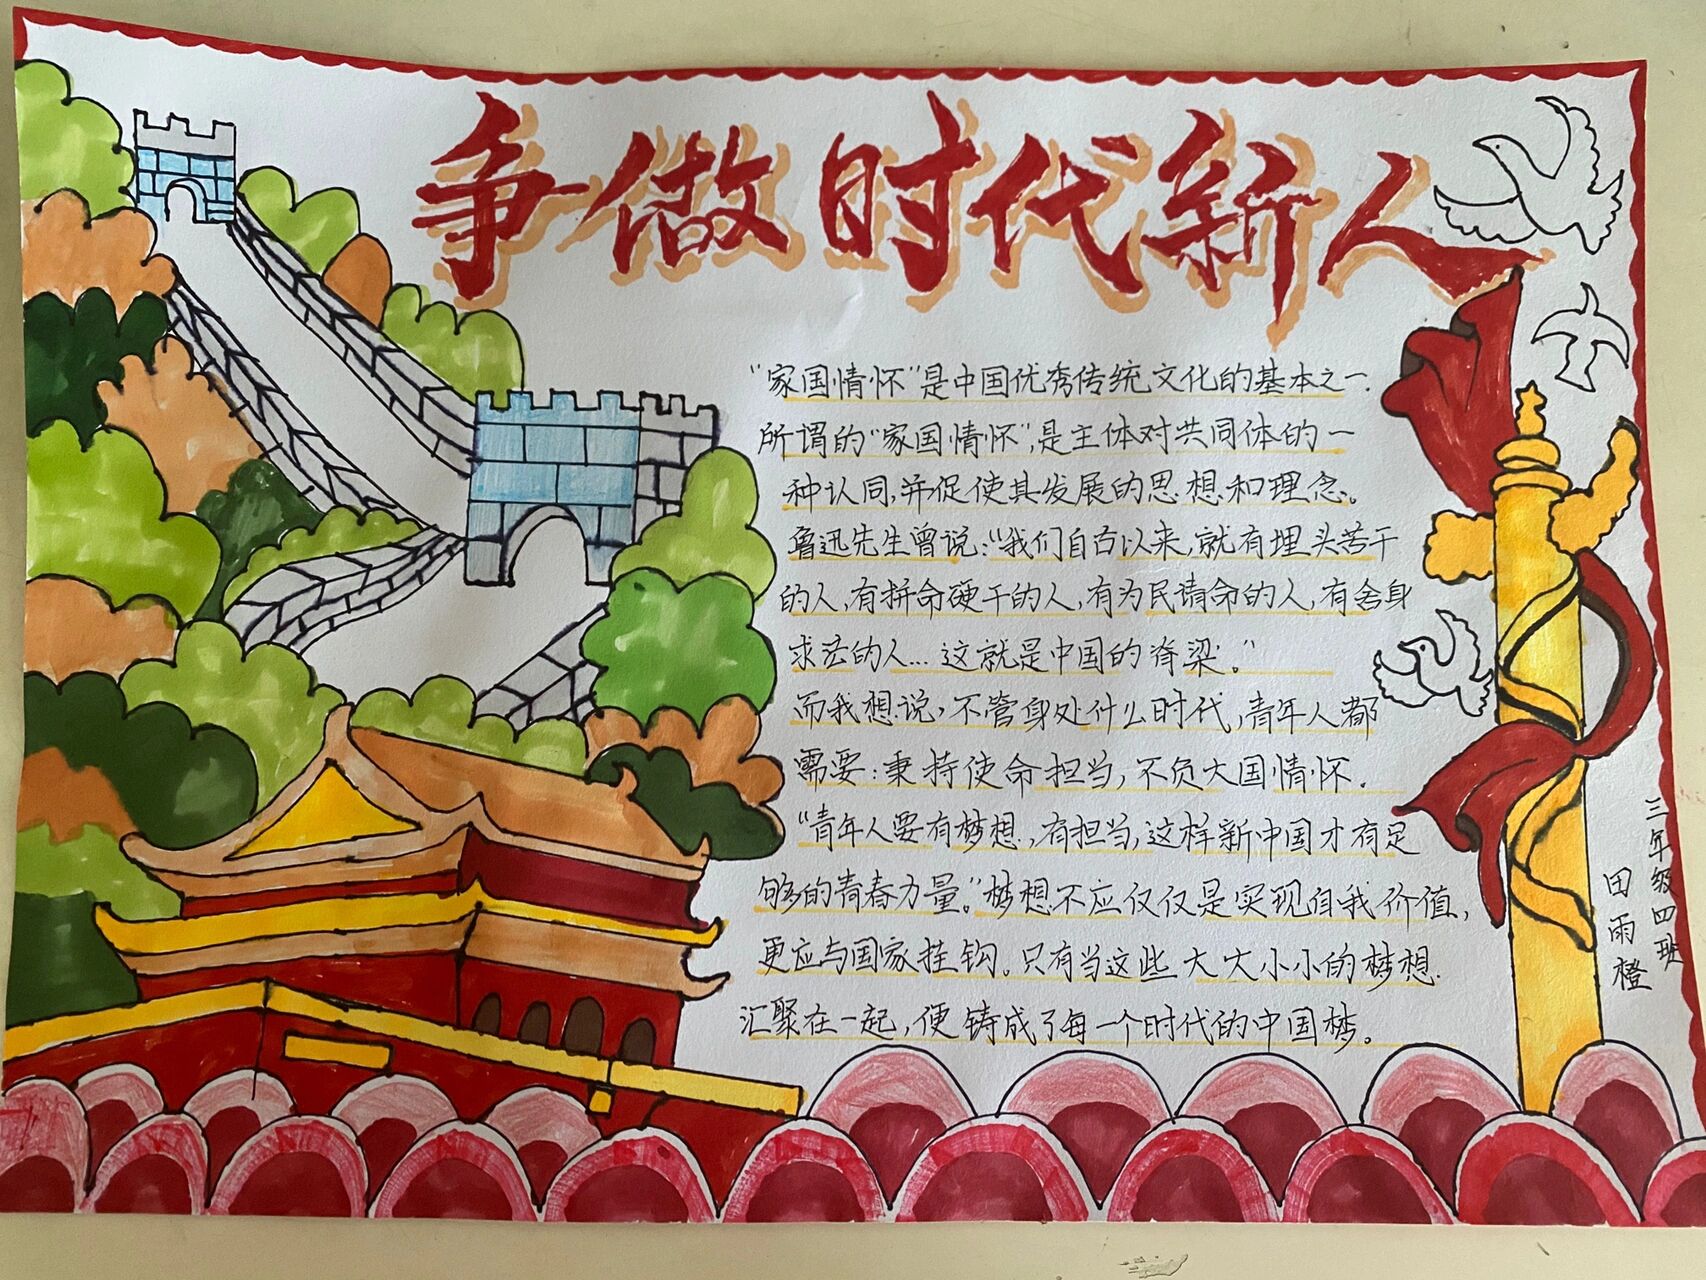 争做时代新人
"家国情怀"是中国优秀传统文化的基本之一.
所谓的"家国情怀",是主体对共同体的一
种认同,并促使其发展的思想和理念。
鲁迅先生曾说:"我们自古以来,就有埋头苦干
的人,有拼命硬干的人,有为民请命的人,有舍身
求法的人...这就是中国的脊梁。"
而我想说,不管身处什么时代,青年人都
需要:秉持使命担当,不负大国情怀.
"青年人要有梦想,有担当,这样新中国才有足
够的青春力量。"梦想不应仅仅是实现自我价值,
更应与国家挂钩。只有当这些大大小小的梦想
汇聚在一起,便铸成了每一个时代的中国梦。
三年级四班
田雨橙